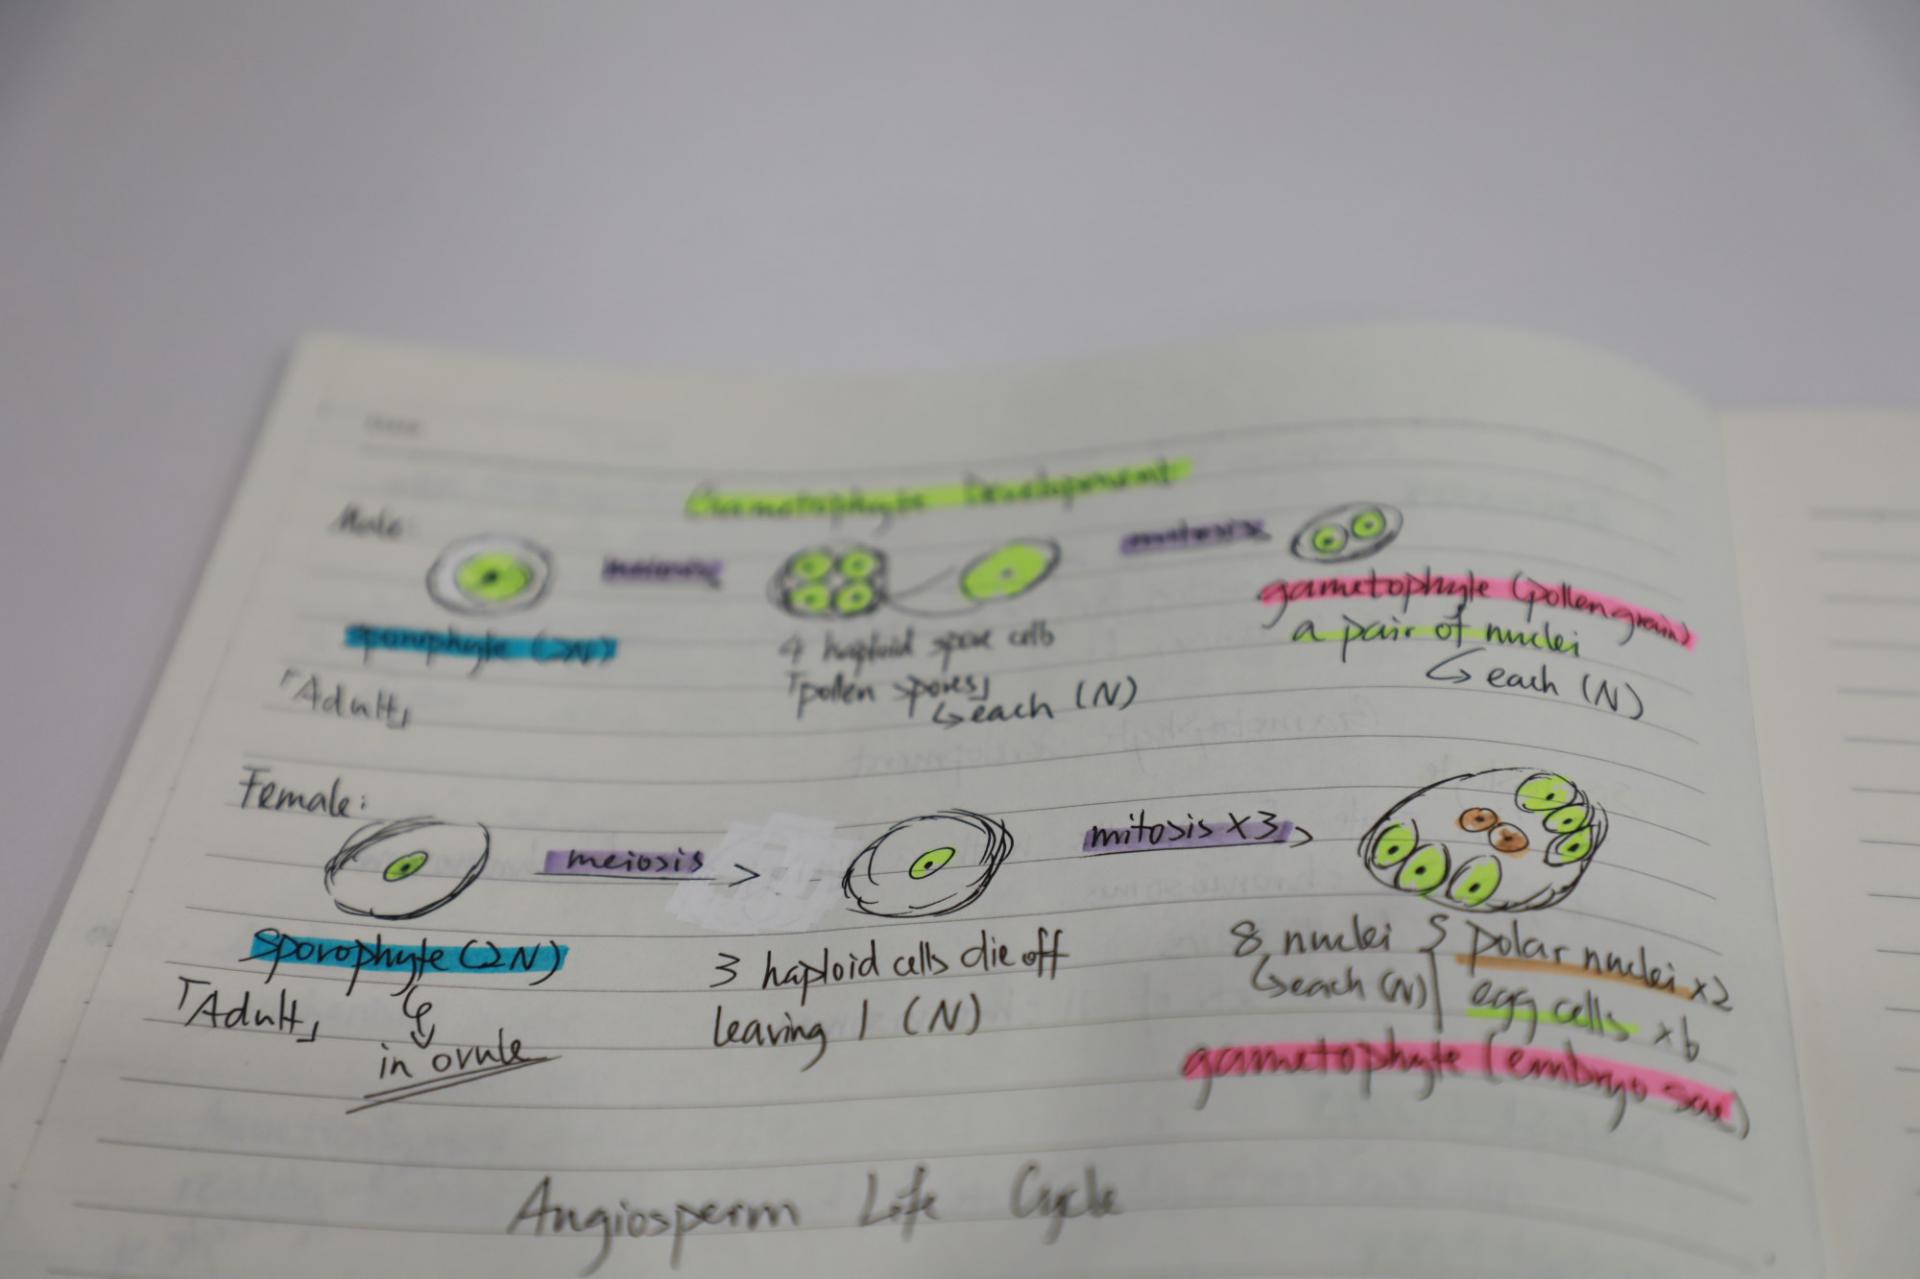 Gametophyte Development
Male:
meiosis
mitosis
sporophyte (2N)
「Adult」
4 haploid spore cells
「pollen spores」
↳ each (N)
gametophyte (pollen grain)
a pair of nuclei
↳ each (N)
Female:
meiosis →
mitosis x3 →
sporophyte (2N)
「Adult」
in ovule
3 haploid cells die off
leaving 1 (N)
8 nuclei { polar nuclei x2
↳ each (N) egg cells x6
gametophyte (embryo sac)
Angiosperm Life Cycle